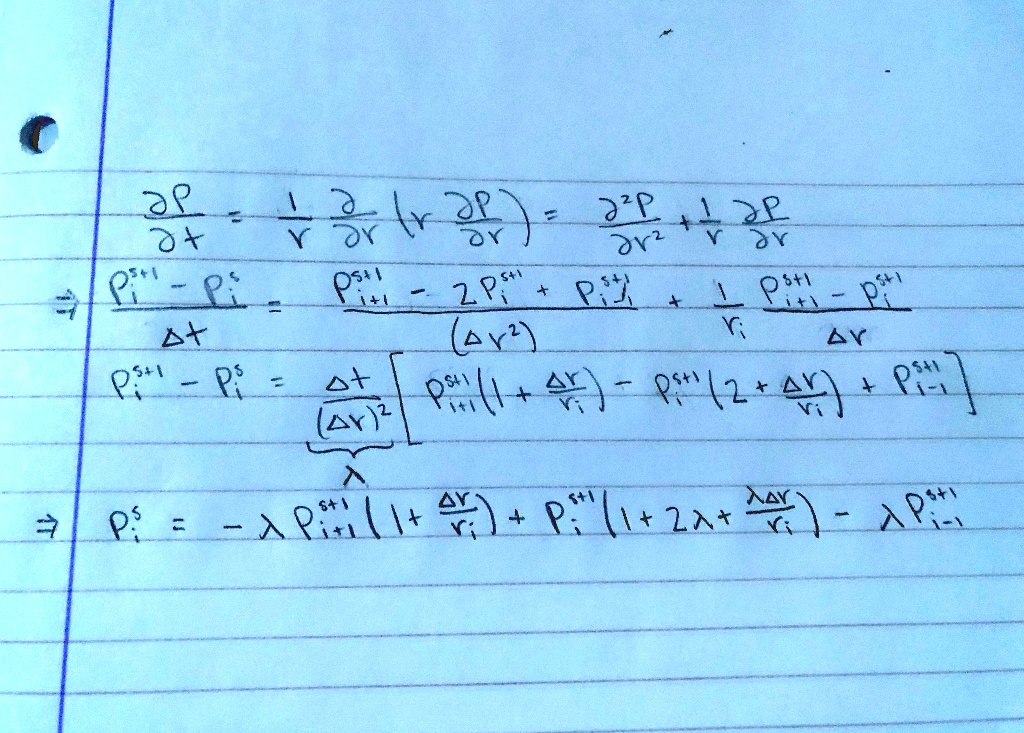 ∂P/∂t = 1/r ∂/∂r (r ∂P/∂r) = ∂²P/∂r² + 1/r ∂P/∂r
⇒ (P_i^{s+1} - P_i^s)/Δt = (P_{i+1}^{s+1} - 2P_i^{s+1} + P_{i-1}^{s+1})/(Δr²) + 1/r_i (P_{i+1}^{s+1} - P_i^{s+1})/Δr
P_i^{s+1} - P_i^s = Δt/(Δr)² [P_{i+1}^{s+1}(1 + Δr/r_i) - P_i^{s+1}(2 + Δr/r_i) + P_{i-1}^{s+1}]
λ
⇒ P_i^s = -λP_{i+1}^{s+1}(1 + Δr/r_i) + P_i^{s+1}(1 + 2λ + λΔr/r_i) - λP_{i-1}^{s+1}